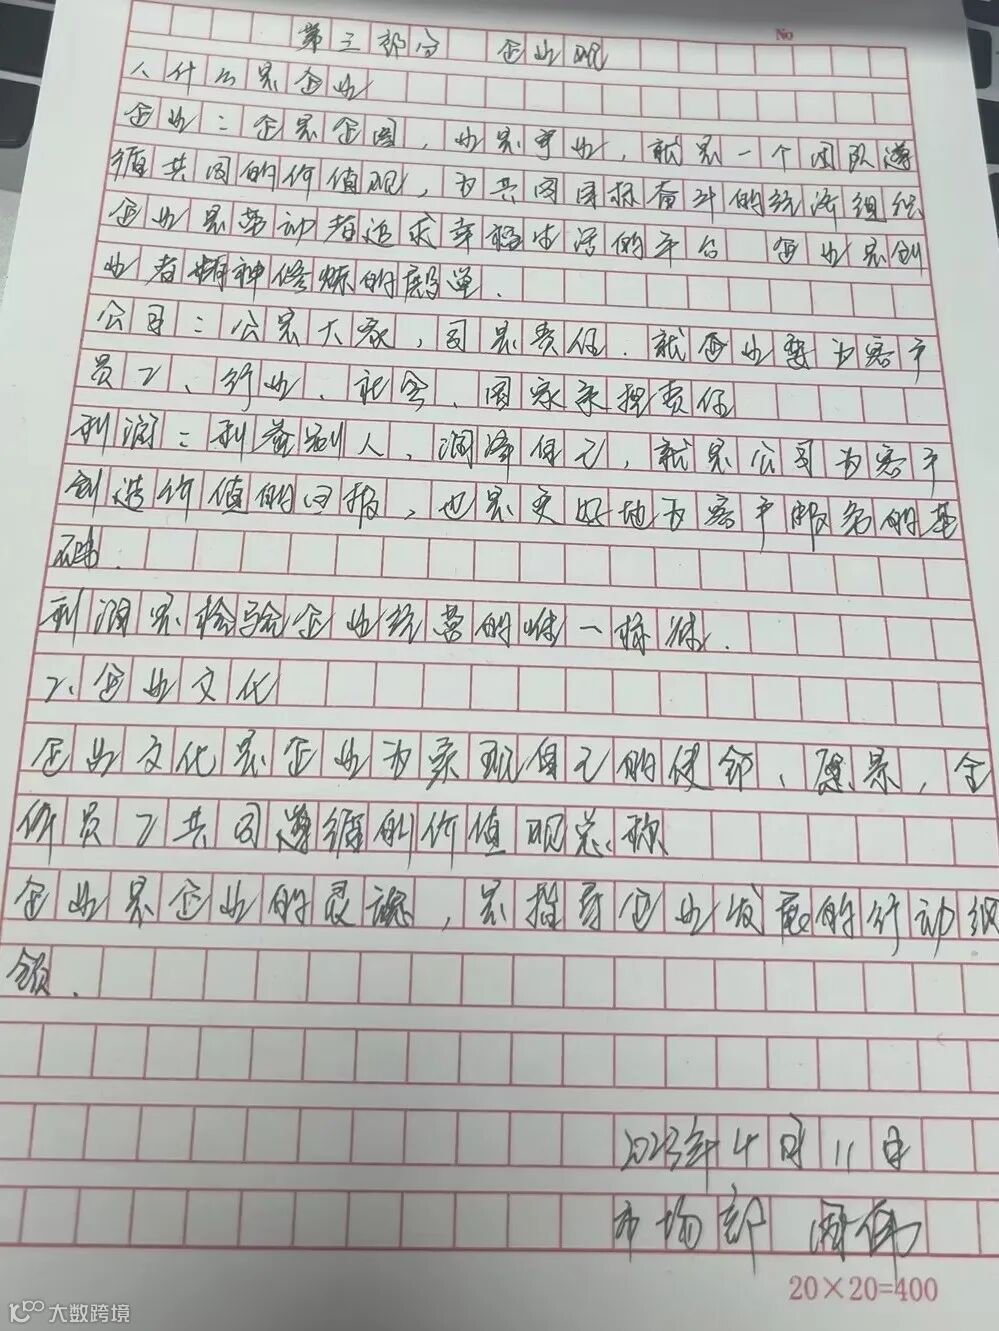 No
第三部分 企业观
1、什么是企业
企业：企是企图，业是事业，就是一个团队遵
循共同的价值观，为共同目标奋斗的经济组织
企业是劳动者追求幸福生活的平台 企业是创
业者精神修炼的殿堂.
公司：公是大家，司是责任.就企业要为客户
员工、行业、社会、国家承担责任
利润：利益别人，润泽自己，就是公司为客户
创造价值的回报，也是更好地为客户服务的基
础.
利润是检验企业经营的唯一标准.
2、企业文化
企业文化是企业为实现自己的使命、愿景，全
体员工共同遵循的价值观总称
企业是企业的灵魂，是推动企业发展的行动纲
领.
2023年4月11日
市场部 周伟
20×20=400
大数跨境